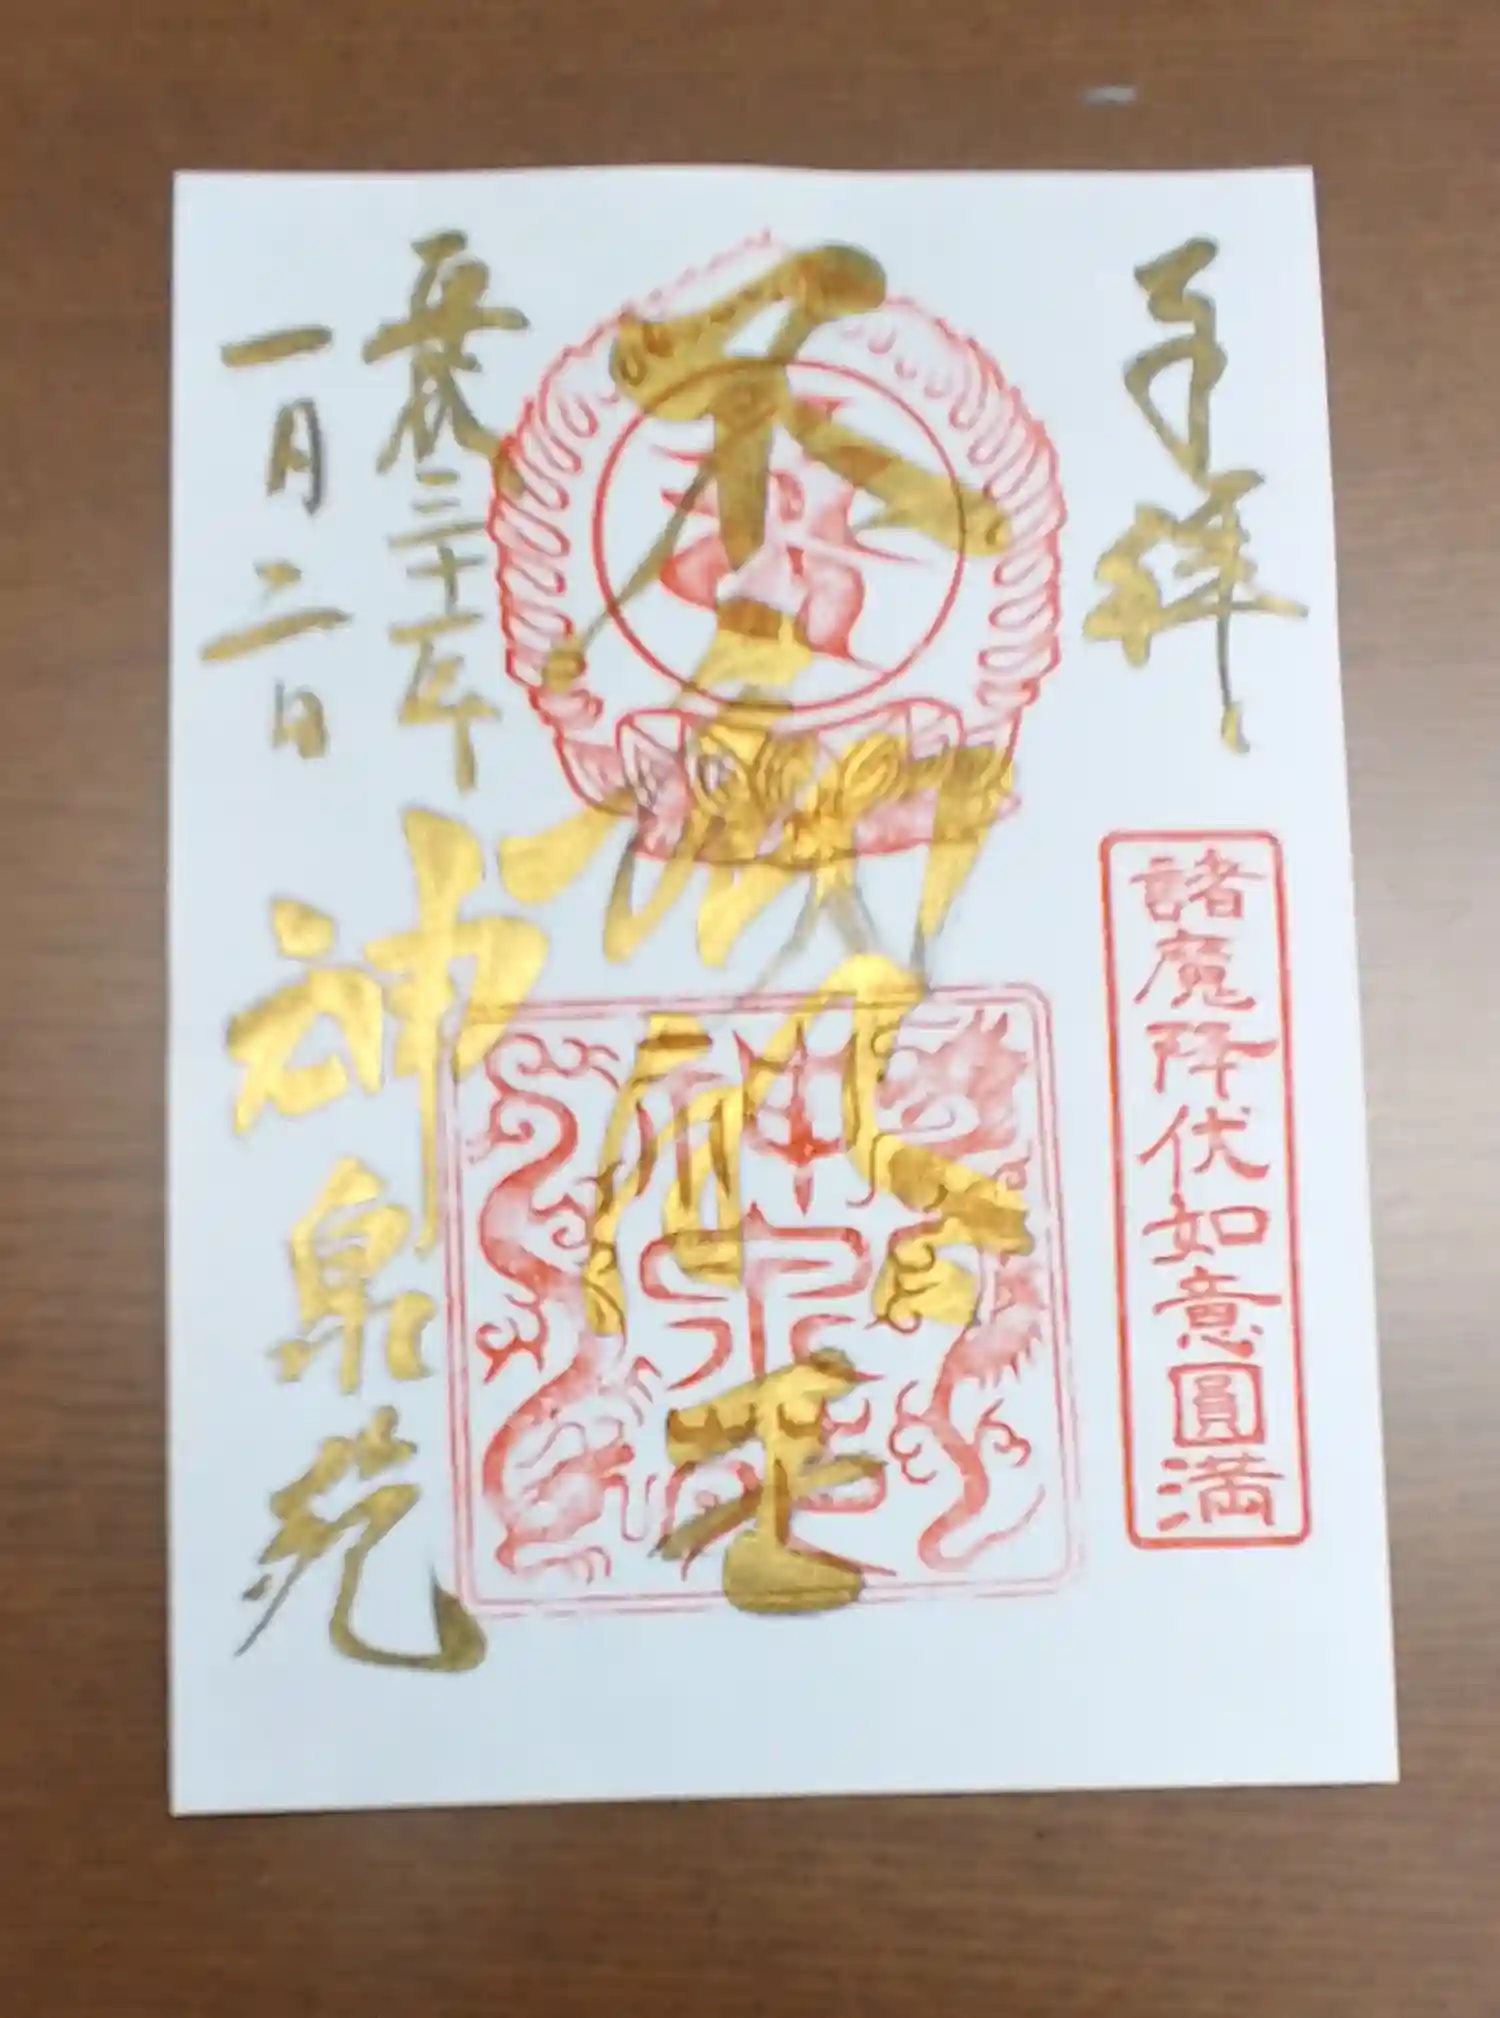 奉拝
諸魔降伏如意圓満
不動明王
神泉苑
平成三十一年
一月二日
神泉苑